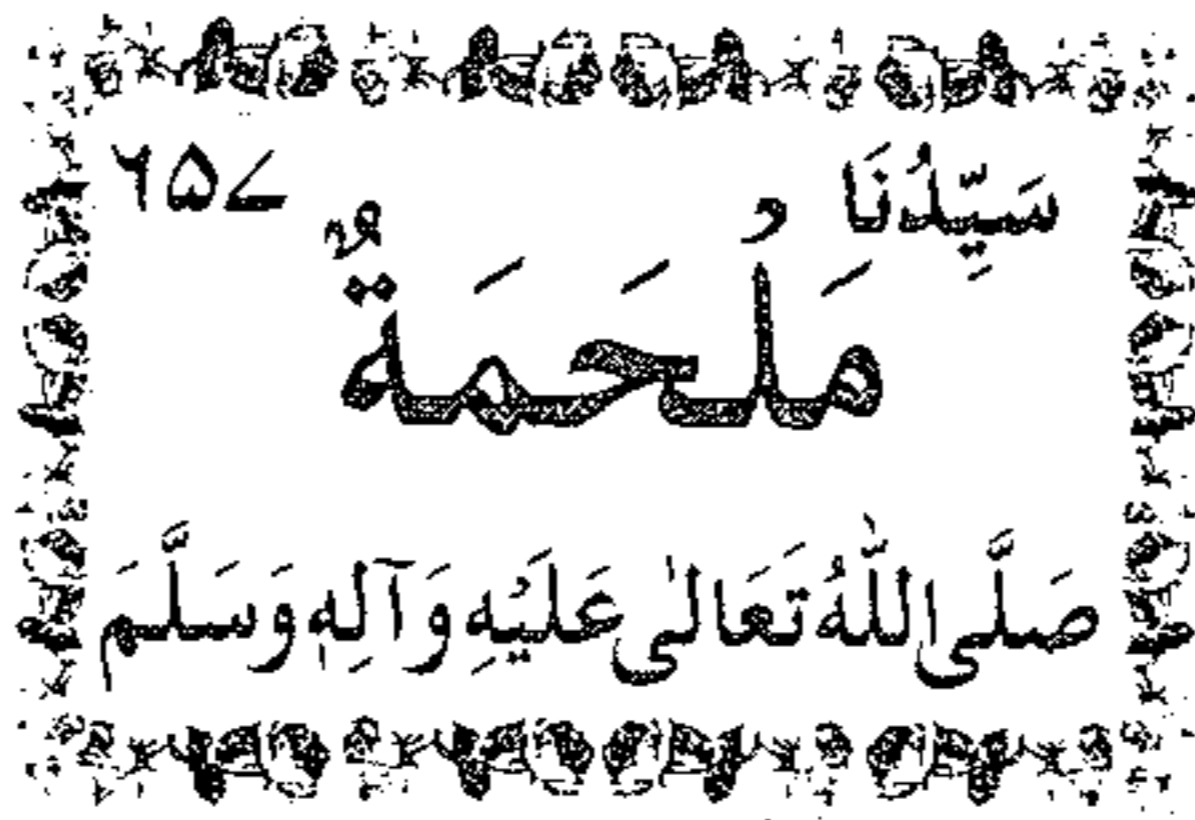 سَیِّدُنَا ۶۵۷
مَلْحَمَةٌ
صَلَّى اللّٰهُ تَعَالىٰ عَلَيْهِ وَآلِهٖ وَسَلَّمَ